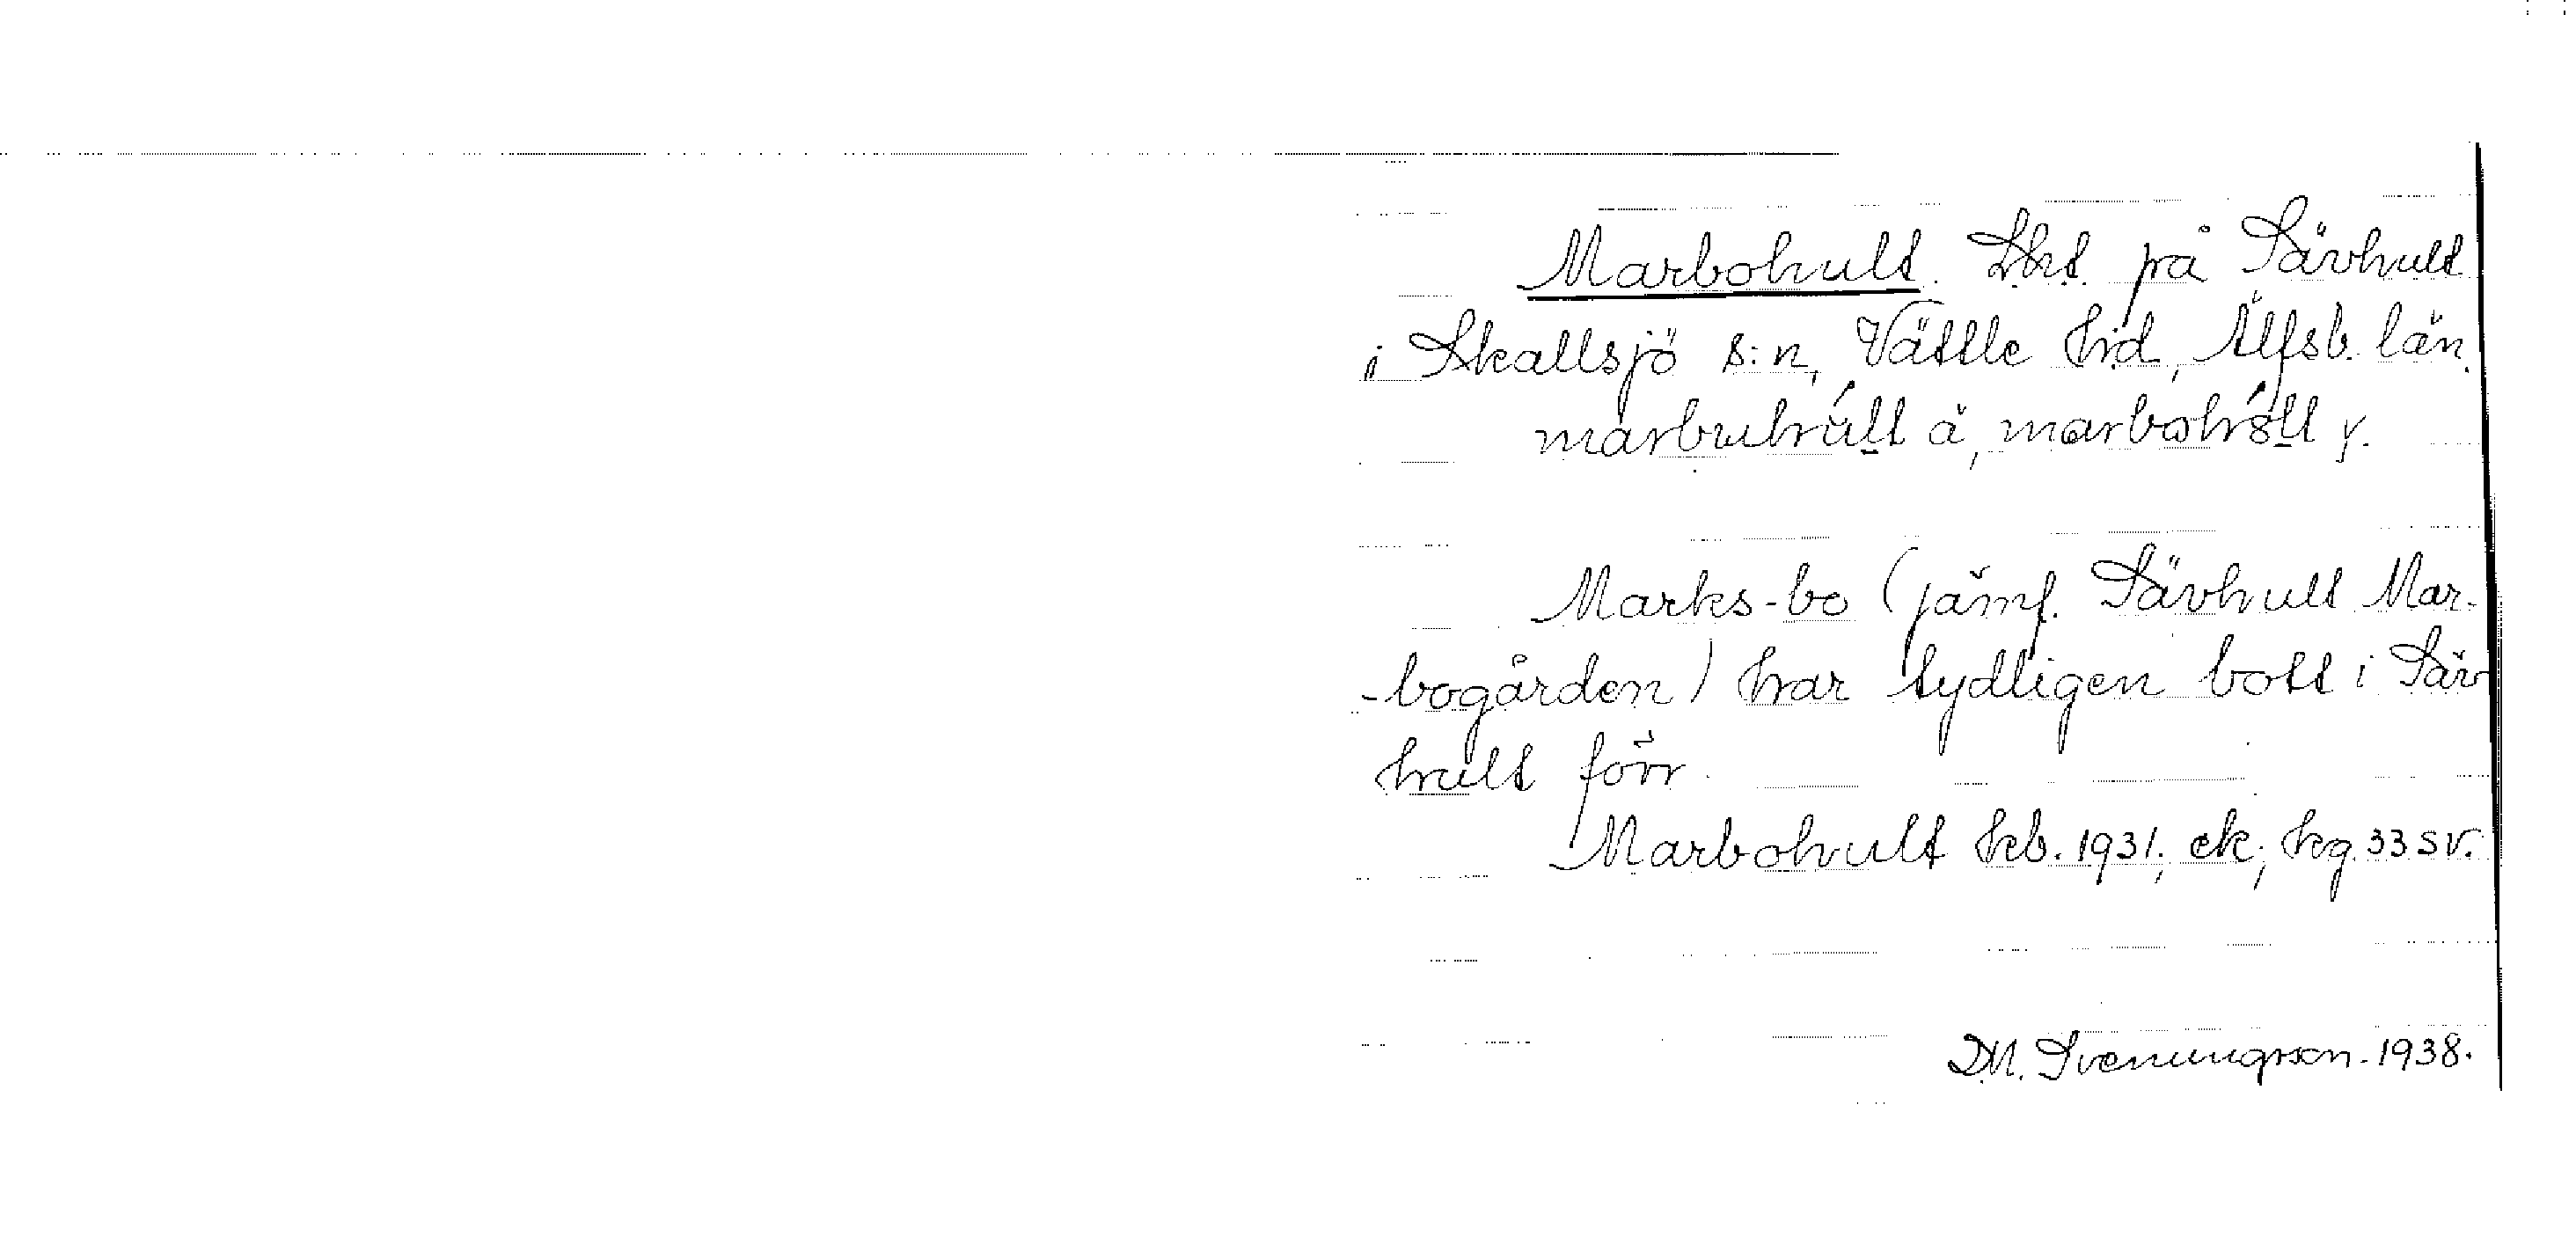 Marbohult. Lht. på Sävhult
i Skallsjö s:n, Vättle hd, Älfsb. län.
marbuhult ä, marbohålt y.
Marks-bo (jämf. Sävhult Mar-
-bogården) har tydligen bott i Säv
hult förr.
Marbohult kb. 1931; ek; kg 33 SV.
D.M. Svenungsson. 1938.